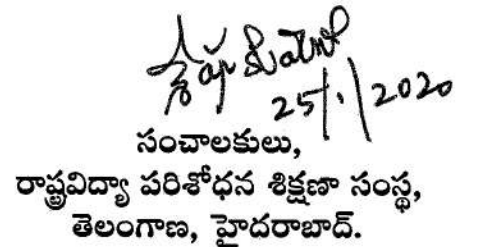 శేషు కుమారి
25/1/2020
సంచాలకులు,
రాష్ట్రవిద్యా పరిశోధన శిక్షణా సంస్థ,
తెలంగాణ, హైదరాబాద్.